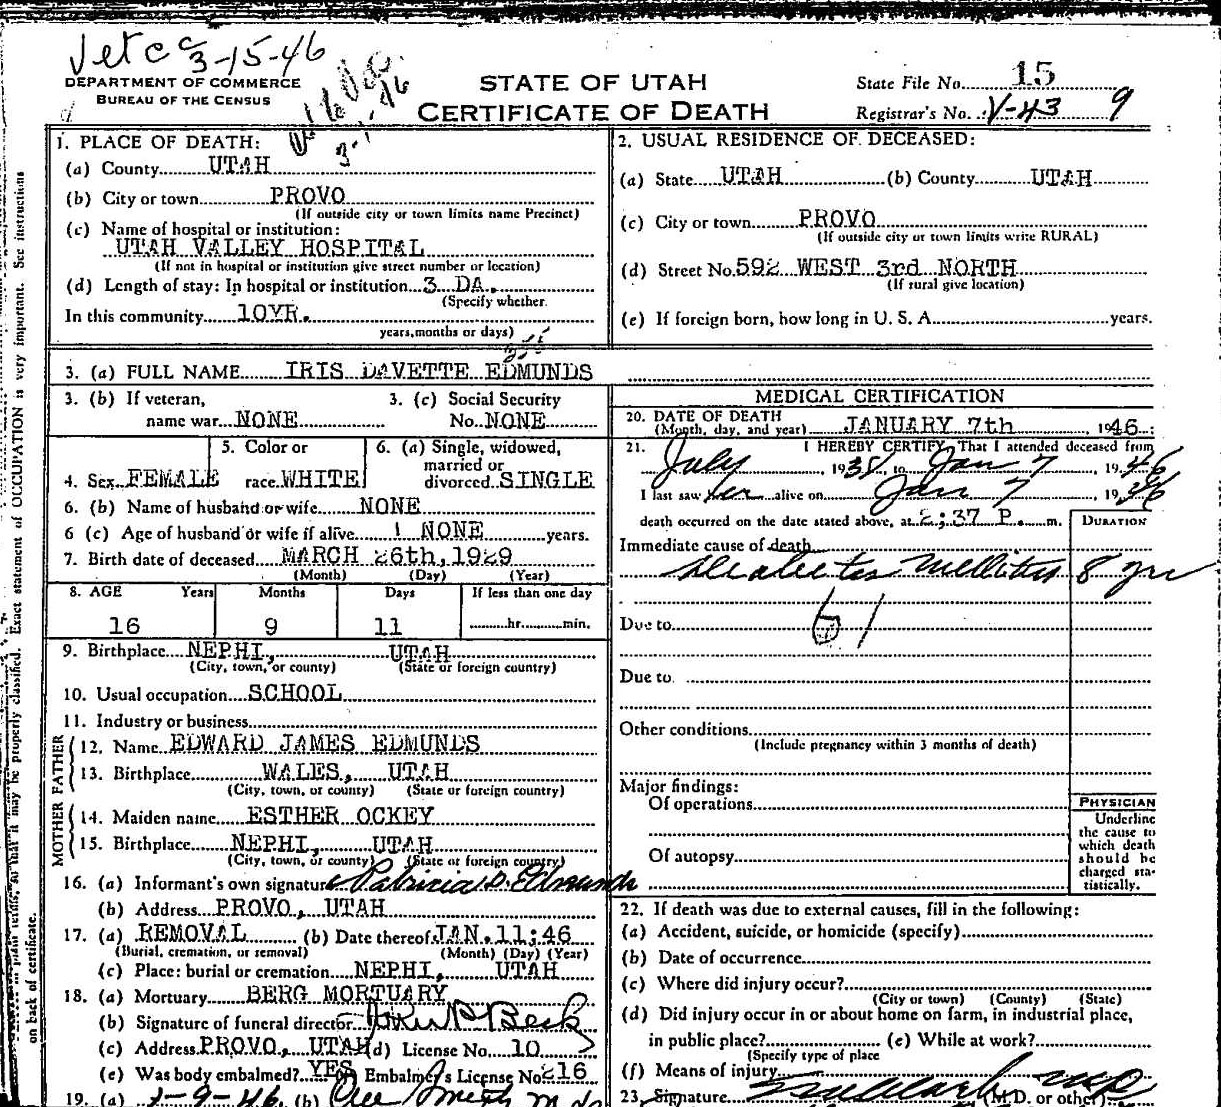 3-15-46
DEPARTMENT OF COMMERCE
BUREAU OF THE CENSUS
STATE OF UTAH
CERTIFICATE OF DEATH
State File No. 15
Registrar's No. V-43 9
1. PLACE OF DEATH:
(a) County UTAH
(b) City or town PROVO
(If outside city or town limits name Precinct)
(c) Name of hospital or institution:
UTAH VALLEY HOSPITAL
(If not in hospital or institution give street number or location)
(d) Length of stay: In hospital or institution 3 DA.
(Specify whether
In this community 10YR.
years, months or days)
2. USUAL RESIDENCE OF DECEASED:
(a) State UTAH (b) County UTAH
(c) City or town PROVO
(If outside city or town limits write RURAL)
(d) Street No. 592 WEST 3rd NORTH
(If rural give location)
(e) If foreign born, how long in U. S. A. years.
3. (a) FULL NAME IRIS DAVETTE EDMUNDS
3. (b) If veteran, name war NONE
3. (c) Social Security No. NONE
4. Sex FEMALE
5. Color or race WHITE
6. (a) Single, widowed, married or divorced SINGLE
6. (b) Name of husband or wife NONE
6 (c) Age of husband or wife if alive NONE years.
7. Birth date of deceased MARCH 26th, 1929
(Month) (Day) (Year)
8. AGE Years Months Days If less than one day
16 9 11 hr. min.
9. Birthplace NEPHI, UTAH
(City, town, or county) (State or foreign country)
10. Usual occupation SCHOOL
11. Industry or business
FATHER
12. Name EDWARD JAMES EDMUNDS
13. Birthplace WALES, UTAH
(City, town, or county) (State or foreign country)
MOTHER
14. Maiden name ESTHER OCKEY
15. Birthplace NEPHI, UTAH
(City, town, or county) (State or foreign country)
16. (a) Informant's own signature Patricia D. Edmunds
(b) Address PROVO, UTAH
17. (a) REMOVAL (b) Date thereof JAN. 11; 46
(Burial, cremation, or removal) (Month) (Day) (Year)
(c) Place: burial or cremation NEPHI, UTAH
18. (a) Mortuary BERG MORTUARY
(b) Signature of funeral director
(c) Address PROVO, UTAH (d) License No. 10
(e) Was body embalmed? YES Embalmer's License No. 216
19. (a) 1-9-46 (b)
MEDICAL CERTIFICATION
20. DATE OF DEATH
(Month, day, and year) JANUARY 7th, 1946:
21. I HEREBY CERTIFY, That I attended deceased from
July 1938, to Jan 7 1946
I last saw her alive on Jan 7 1946
death occurred on the date stated above, at 2;37 P. m.
DURATION
Immediate cause of death
Diabetes Mellitus 8 yrs
Due to 61
Due to
Other conditions
(Include pregnancy within 3 months of death)
Major findings:
Of operations
Of autopsy
PHYSICIAN
Underline
the cause to
which death
should be
charged sta-
tistically.
22. If death was due to external causes, fill in the following:
(a) Accident, suicide, or homicide (specify)
(b) Date of occurrence
(c) Where did injury occur?
(City or town) (County) (State)
(d) Did injury occur in or about home on farm, in industrial place,
in public place? (e) While at work?
(Specify type of place
(f) Means of injury
23. Signature (M.D. or other)
Exact statement of OCCUPATION is very important. See instructions
on back of certificate.